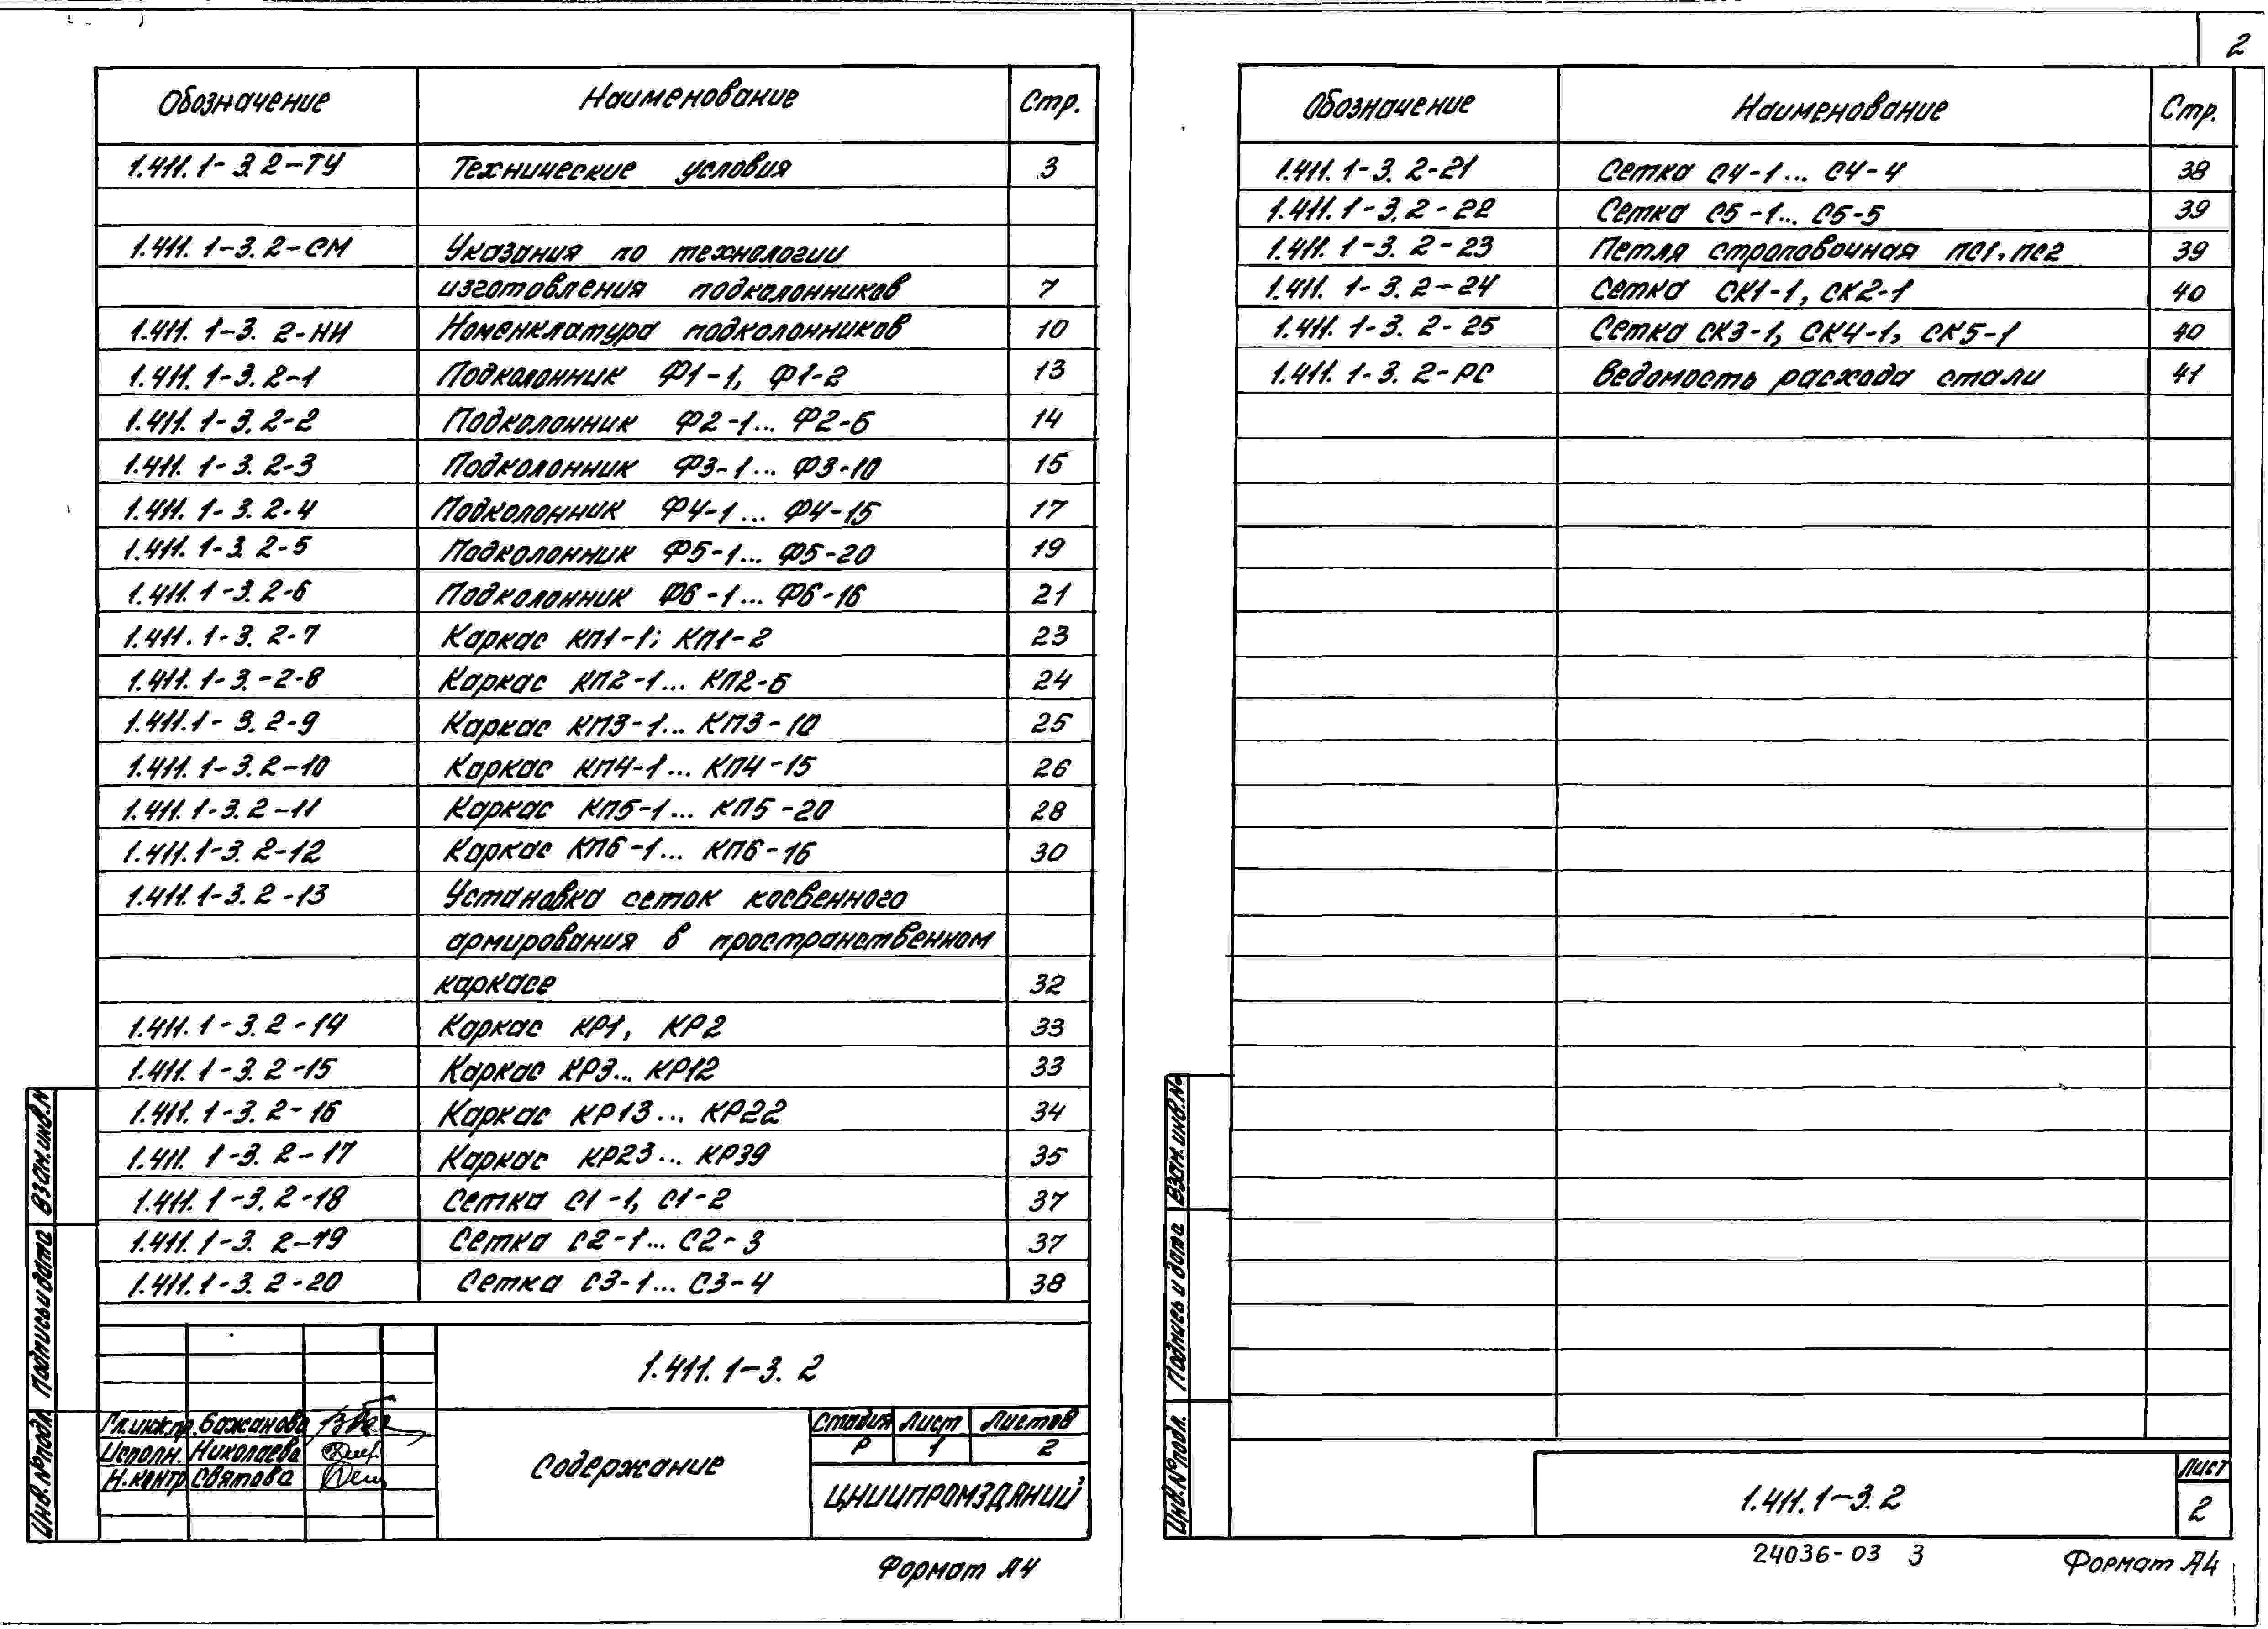 Обозначение Наименование Стр.
1.411.1-3.2-ТУ Технические условия 3
1.411.1-3.2-СМ Указания по технологии
изготовления подколонников 7
1.411.1-3.2-НИ Номенклатура подколонников 10
1.411.1-3.2-1 Подколонник Ф1-1, Ф1-2 13
1.411.1-3.2-2 Подколонник Ф2-1... Ф2-6 14
1.411.1-3.2-3 Подколонник Ф3-1... Ф3-10 15
1.411.1-3.2-4 Подколонник Ф4-1... Ф4-15 17
1.411.1-3.2-5 Подколонник Ф5-1... Ф5-20 19
1.411.1-3.2-6 Подколонник Ф6-1... Ф6-16 21
1.411.1-3.2-7 Каркас КП1-1; КП1-2 23
1.411.1-3.-2-8 Каркас КП2-1... КП2-6 24
1.411.1-3.2-9 Каркас КП3-1... КП3-10 25
1.411.1-3.2-10 Каркас КП4-1... КП4-15 26
1.411.1-3.2-11 Каркас КП5-1... КП5-20 28
1.411.1-3.2-12 Каркас КП6-1... КП6-16 30
1.411.1-3.2-13 Установка сеток косвенного
армирования в пространственном
каркасе 32
1.411.1-3.2-14 Каркас КР1, КР2 33
1.411.1-3.2-15 Каркас КР3... КР12 33
1.411.1-3.2-16 Каркас КР13... КР22 34
1.411.1-3.2-17 Каркас КР23... КР39 35
1.411.1-3.2-18 Сетка С1-1, С1-2 37
1.411.1-3.2-19 Сетка С2-1... С2-3 37
1.411.1-3.2-20 Сетка С3-1... С3-4 38
Взам.инв.№
Подпись и дата
Инв.№подл.
1.411.1-3.2
Гл.инж.пр. Бажанова
Исполн. Николаева
Н.контр. Святова
Содержание
Стадия Лист Листов
Р 1 2
ЦНИИПРОМЗДАНИЙ
Формат А4
2
Обозначение Наименование Стр.
1.411.1-3.2-21 Сетка С4-1... С4-4 38
1.411.1-3.2-22 Сетка С5-1... С5-5 39
1.411.1-3.2-23 Петля строповочная ПС1, ПС2 39
1.411.1-3.2-24 Сетка СК1-1, СК2-1 40
1.411.1-3.2-25 Сетка СК3-1, СК4-1, СК5-1 40
1.411.1-3.2-РС Ведомость расхода стали 41
Взам.инв.№
Подпись и дата
Инв.№подл.
1.411.1-3.2
Лист
2
24036-03 3
Формат А4